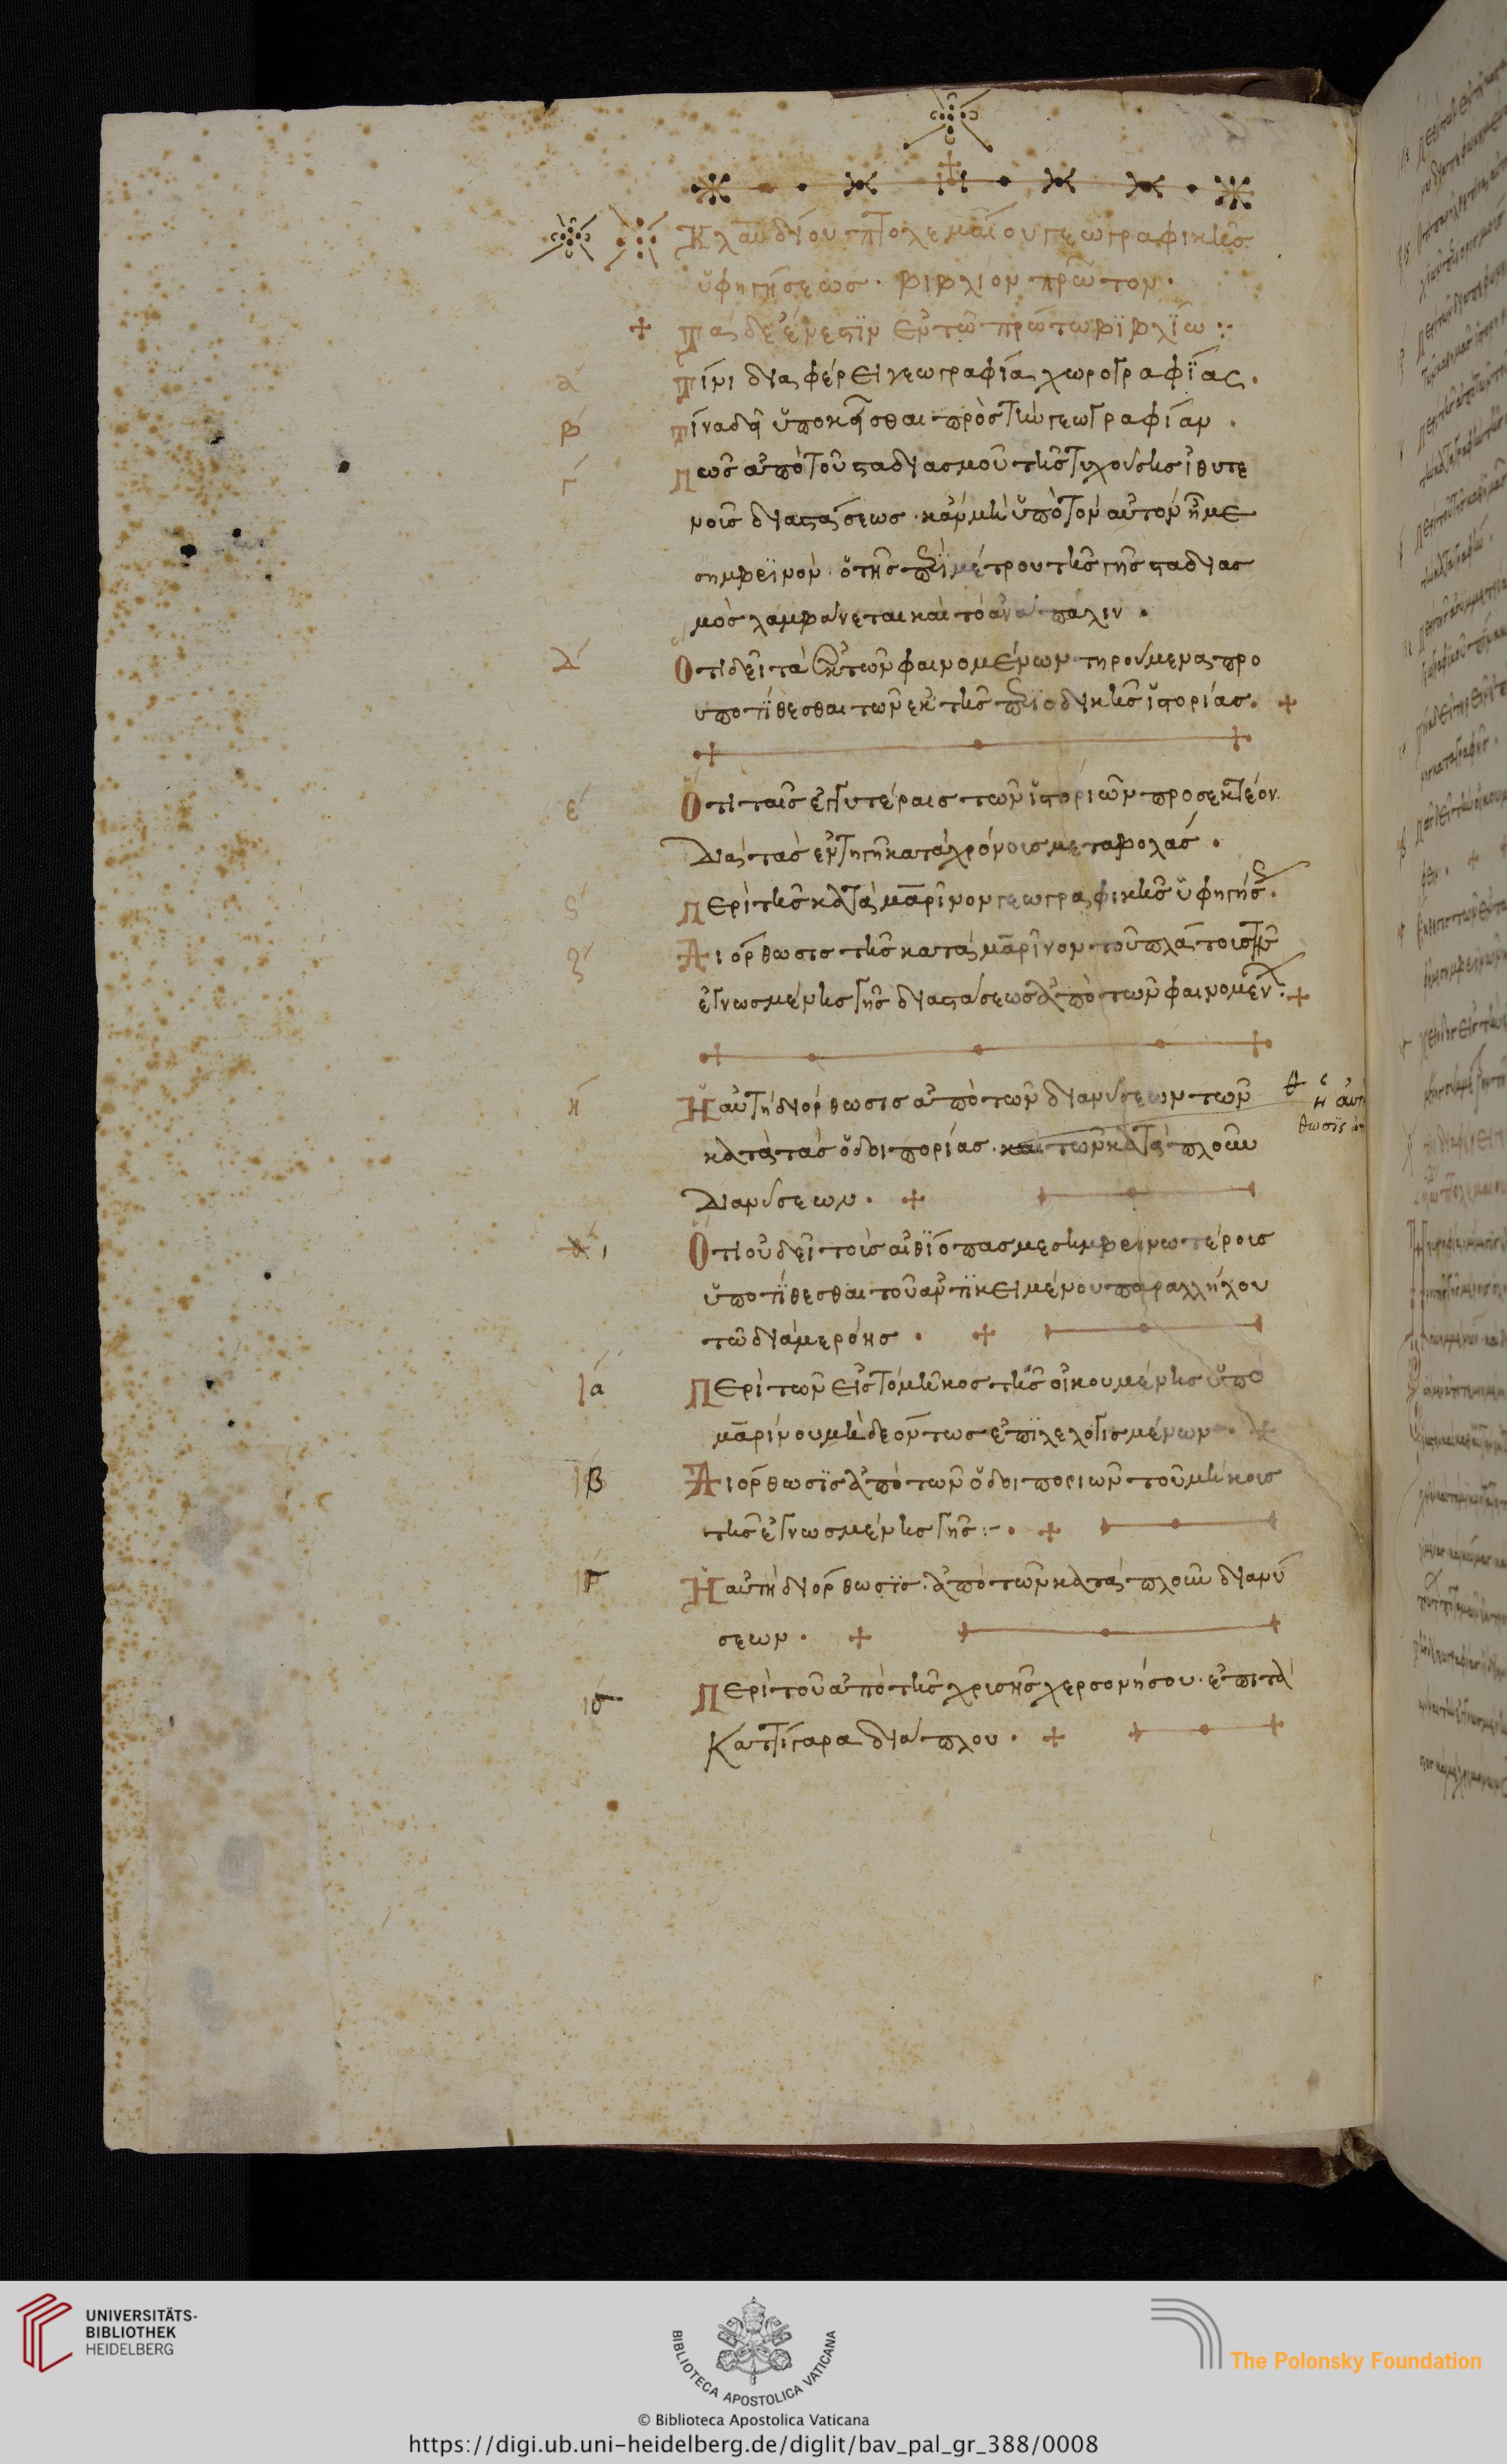 Κλαυδίου πτολεμαίου γεωγραφικῆς
ὑφηγήσεως · βιβλίον πρῶτον ·
Τάδε ἔνεστιν ἐν τῶ πρώτω βιβλίω :
α Τίνι διαφέρει γεωγραφία χωρογραφίας .
β Τίνα δεῖ ὑποκεῖσθαι πρὸς τὴν γεωγραφίαν .
γ Πῶς ἀπὸ τοῦ σταδιασμοῦ τῆς τυχούσης ἰθυτε
νοῦς διαστάσεως · κἂν μὴ ὑπὸ τὸν αὐτὸν ἦ με
σημβρινὸν · ὁ τῆς περιμέτρου τῆς γῆς σταδιασ
μὸς λαμβάνεται καὶ τὸ ἀνάπαλιν .
δ Ὅτι δεῖ τὰ ἐκ τῶν φαινομένων τηρούμενα προ
υποτίθεσθαι τῶν ἐκ τῆς περιοδικῆς ἱστορίας .
ε Ὅτι ταῖς ἐγγυτέραις τῶν ἱστοριῶν προσεκτέον
διὰ τὰς ἐν τῆ γῆ κατὰ χρόνους μεταβολάς .
ϛ Περὶ τῆς κατὰ μαρῖνον γεωγραφικῆς ὑφηγήσ .
ζ Διόρθωσις τῆς κατὰ μαρῖνον τοῦ πλάτους τῆς
ἐγνωσμένης γῆς διαστάσεως ἀπὸ τῶν φαινομέν .
η Ἡ αὐτὴ διόρθωσις ἀπὸ τῶν διανύσεων τῶν
κατὰ τὰς ὁδοιπορίας · καὶ τῶν κατὰ πλοῦν
διανύσεων .
θ ἡ αὐτὴ
θωσις
ι Ὅτι οὐ δεῖ τοὺς αἰθίοπας μεσημβρινωτέρους
ὑποτίθεσθαι τοῦ ἀντικειμένου παραλλήλου
τῶ διὰ μερόης .
ια Περὶ τῶν εἰς τὸ μῆκος τῆς οἰκουμένης ὑπὸ
μαρίνου μὴ δεόντως ἐπιλελογισμένων .
ιβ Διόρθωσις ἀπὸ τῶν ὁδοιποριῶν τοῦ μήκους
τῆς ἐγνωσμένης γῆς :
ιγ Ἡ αὐτὴ διόρθωσις · ἀπὸ τῶν κατὰ πλοῦν διανύ
σεων .
ιδ Περὶ τοῦ ἀπὸ τῆς χρυσῆς χερσονήσου · ἐπὶ τὰ
Κατίγαρα διάπλου .
UNIVERSITÄTS-
BIBLIOTHEK
HEIDELBERG
BIBLIOTECA APOSTOLICA VATICANA
The Polonsky Foundation
© Biblioteca Apostolica Vaticana
https://digi.ub.uni-heidelberg.de/diglit/bav_pal_gr_388/0008